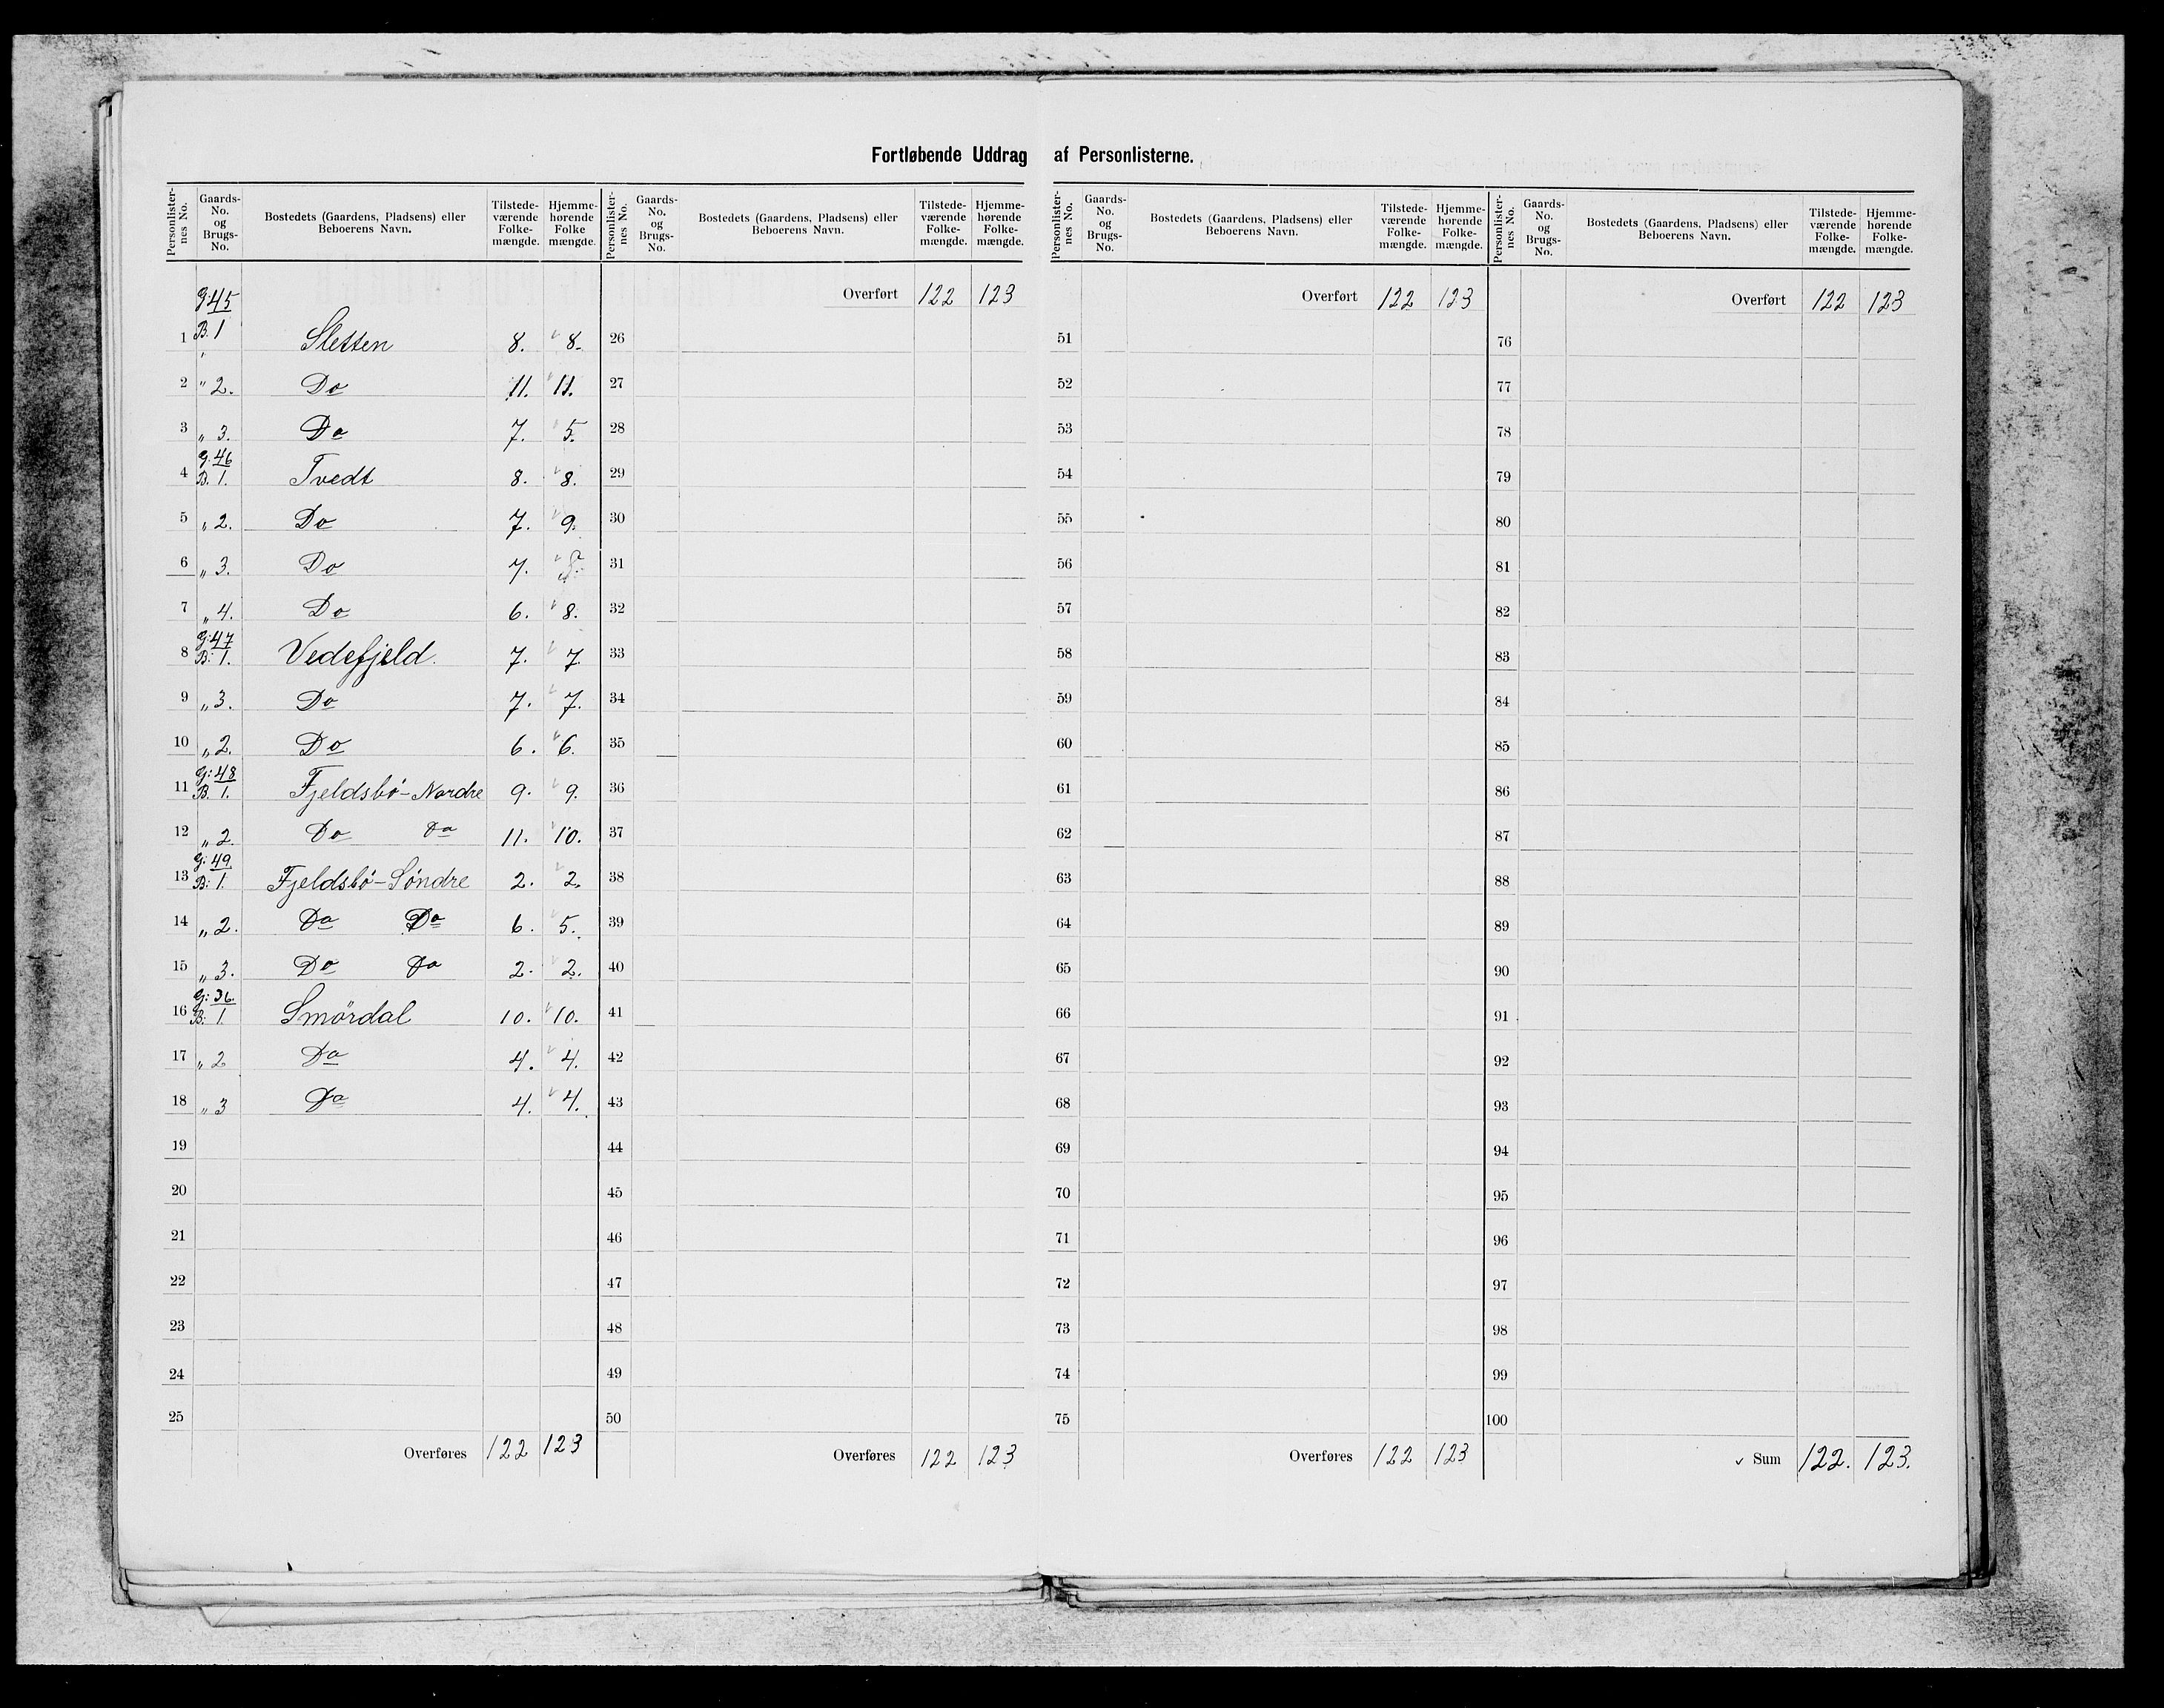 Fortløbende Uddrag af Personlisterne.
Personlister- nes No. | Gaards- No. og Brugs- No. | Bostedets (Gaardens, Pladsens) eller Beboerens Navn. | Tilstede- værende Folke- mængde. | Hjemme- hørende Folke mængde.
G:45
1 B. 1 Sletten 8. 8.
2 " 2. Do 11. 11.
3 " 3. Do 7. 5.
G:46
4 B. 1. Tvedt 8. 8.
5 " 2. Do 7. 9.
6 " 3. Do 7.
7 " 4. Do 6. 8.
G:47
8 B: 1. Vedefjeld. 7. 7.
9 " 3. Do 7. 7.
10 " 2. Do 6. 6.
G:48
11 B. 1. Fjeldsbö-Nordre 9. 9.
12 " 2. Do Do 11. 10.
G:49.
13 B: 1. Fjeldsbö-Söndre 2. 2.
14 " 2. Do Do 6. 5.
15 " 3. Do Do 2. 2.
G:36.
16 B: 1. Smördal 10. 10.
17 " 2 Do 4. 4.
18 " 3 Do 4. 4.
19
20
21
22
23
24
25
Overføres 122 123
Personlister- nes No. | Gaards- No. og Brugs- No. | Bostedets (Gaardens, Pladsens) eller Beboerens Navn. | Tilstede- værende Folke- mængde. | Hjemme- hørende Folke- mængde.
Overført 122 123
26
27
28
29
30
31
32
33
34
35
36
37
38
39
40
41
42
43
44
45
46
47
48
49
50
Overføres 122 123
Personlister- nes No. | Gaards- No. og Brugs- No. | Bostedets (Gaardens, Pladsens) eller Beboerens Navn. | Tilstede- værende Folke- mængde. | Hjemme- hørende Folke- mængde.
Overført 122 123
51
52
53
54
55
56
57
58
59
60
61
62
63
64
65
66
67
68
69
70
71
72
73
74
75
Overføres 122 123
Personlister- nes No. | Gaards- No. og Brugs- No. | Bostedets (Gaardens, Pladsens) eller Beboerens Navn. | Tilstede- værende Folke- mængde. | Hjemme- hørende Folke- mængde.
Overført 122 123
76
77
78
79
80
81
82
83
84
85
86
87
88
89
90
91
92
93
94
95
96
97
98
99
100
Sum 122. 123.